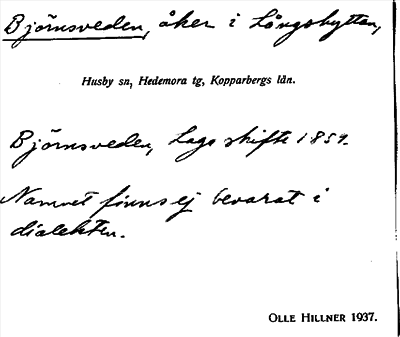 Björnsveden, åker i Långshyttan,
Husby sn, Hedemora tg, Kopparbergs län.
Björnsveden, Laga skifte 1859.
Namnet finns ej bevarat i
dialekten.
OLLE HILLNER 1937.